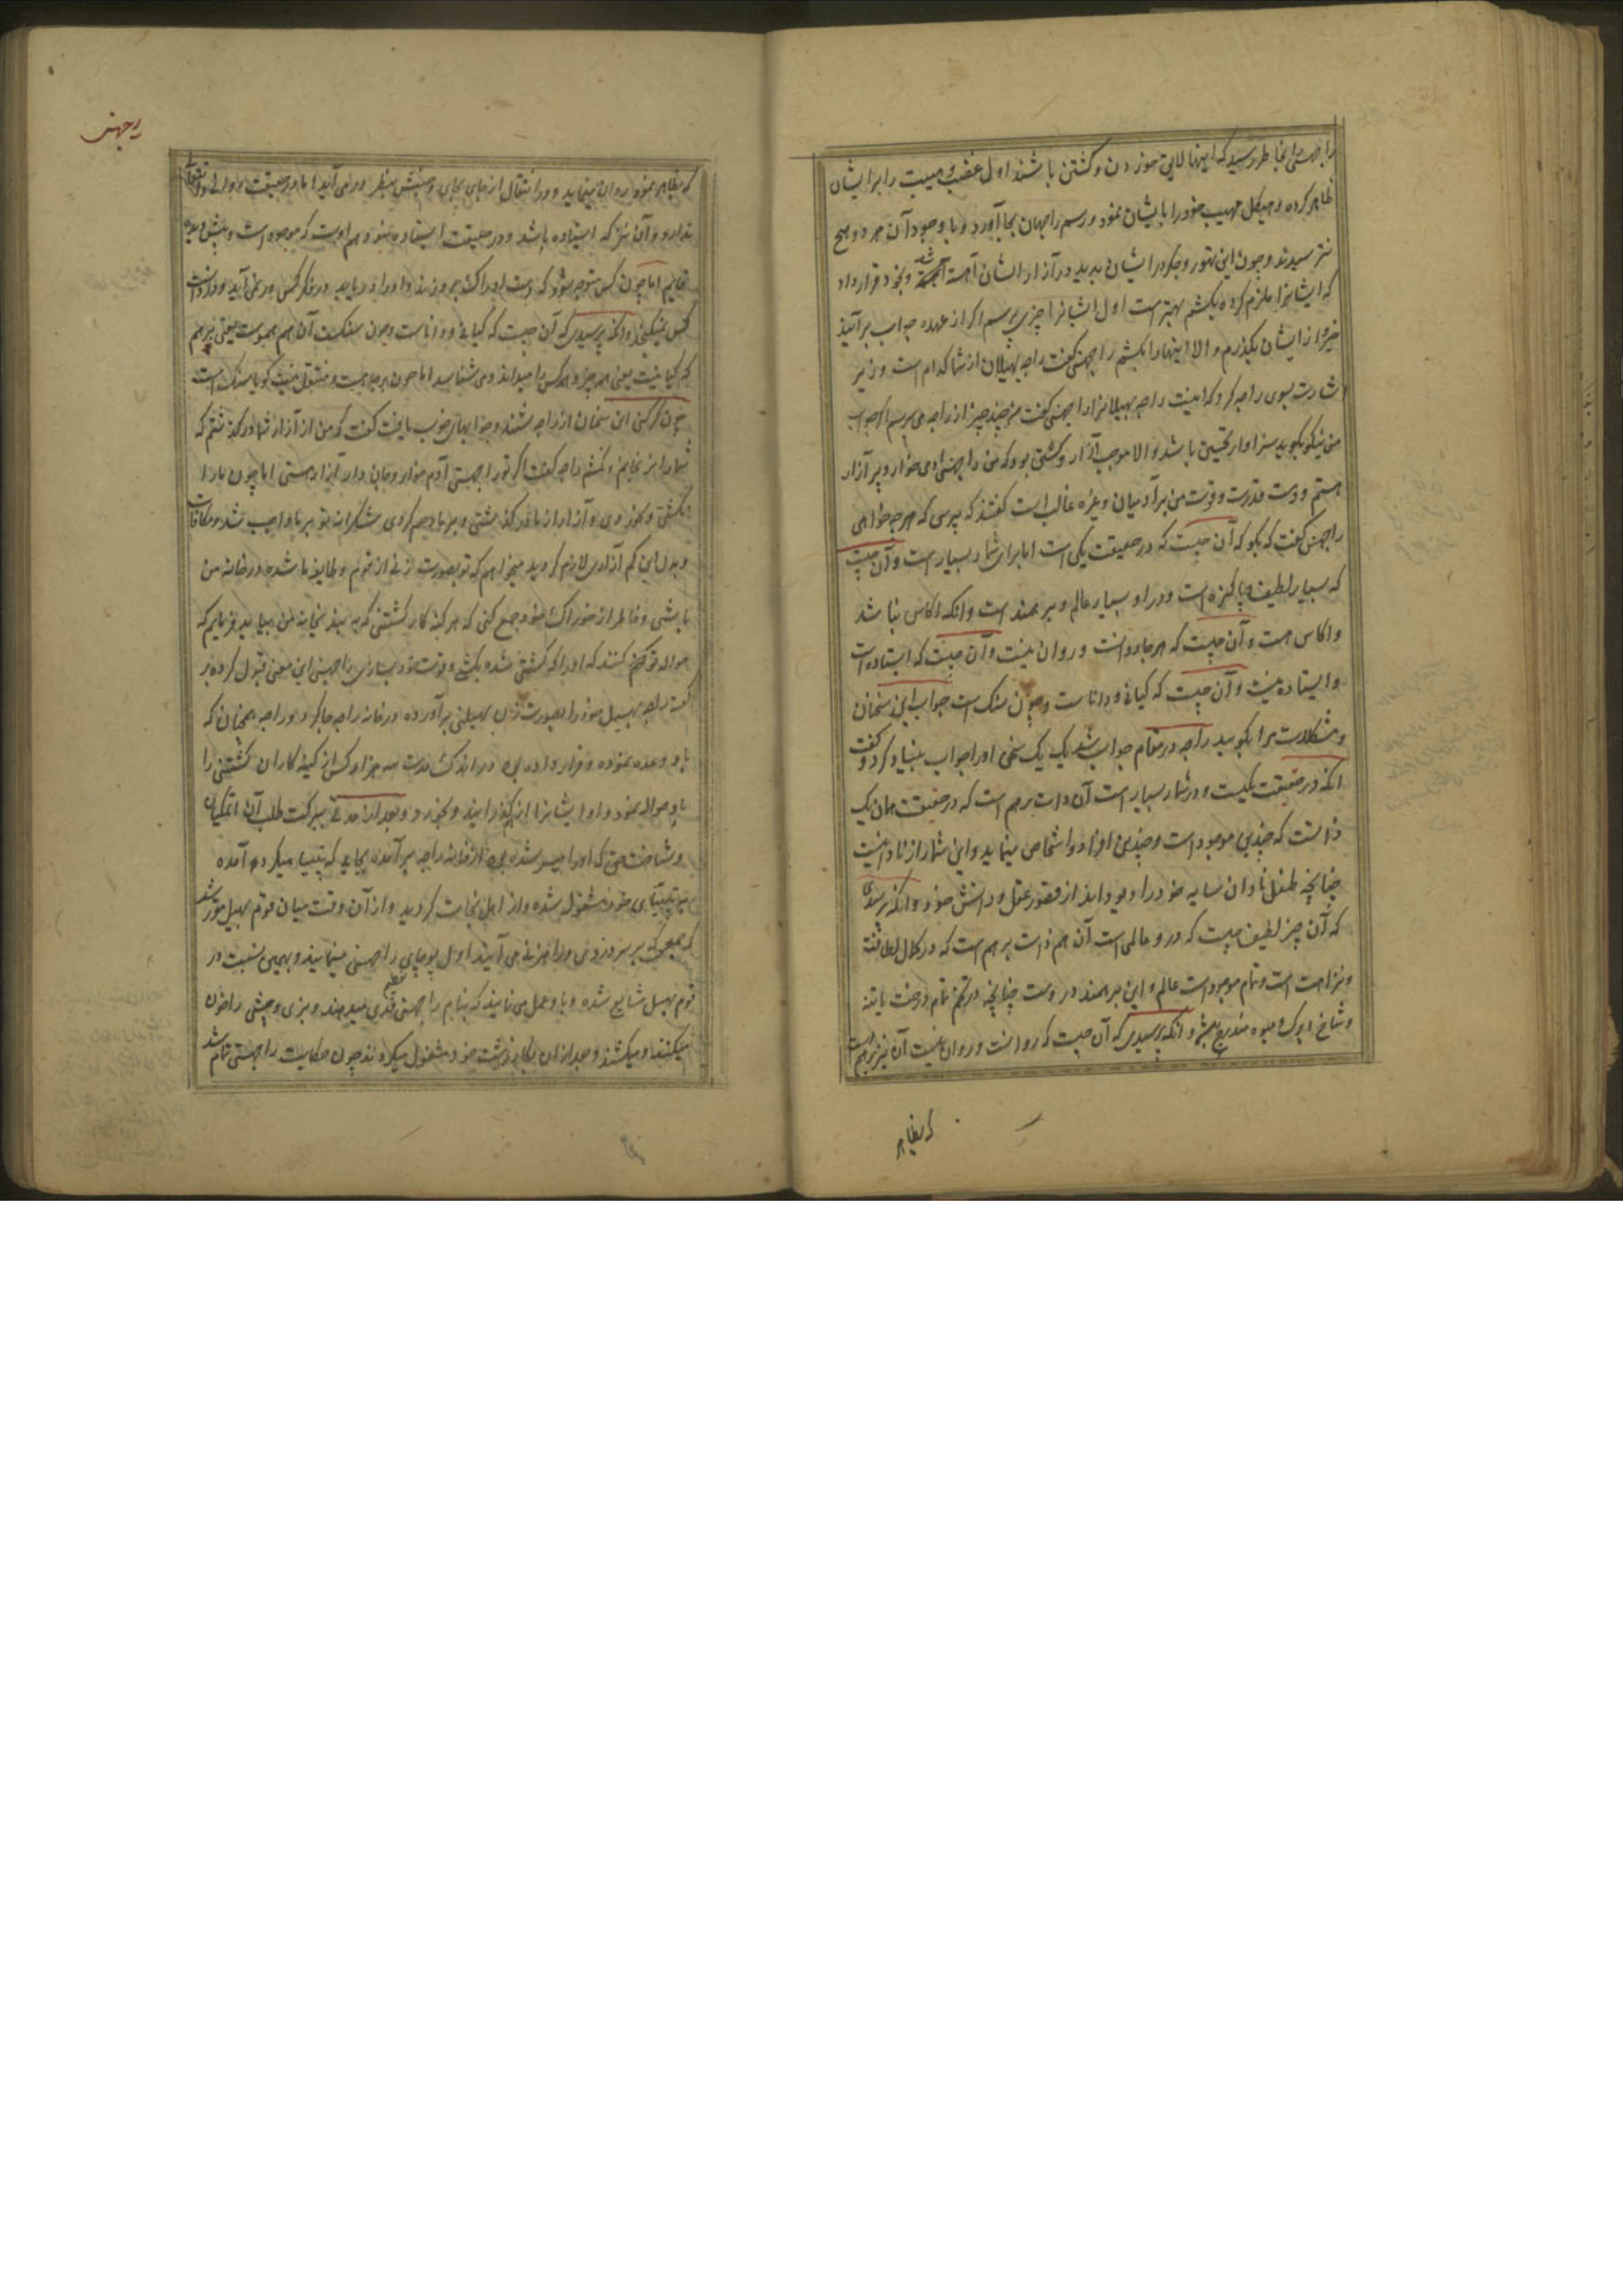 را جهسی را بخاطر رسید که اینها لایق خوردن و کشتن باشند اول غضب و هیبت را برایشان
ظاهر کرده و هیکل مهیب خود را بایشان نمود و رسم راجهان بجا آورد و با وجود آن هر دو هیچ
نترسیدند و چون این تهور و جکر در ایشان بدید در آزار ایشان آهسته شد و بخود قرار داد
که ایشانرا ملزم کرده بکشم بهتر است اول ایشانرا چیزی بپرسم اگر از عهده جواب برآیند
خیر و از ایشان بگذرم و الا اینها را بکشم راجهسی گفت راجه بهیلان از شما کدام است وزیر
اشارت بسوی راجه کرد که اینست راجه بهیلان راجهسی گفت من چند چیز از راجه می پرسم اگر جواب
من نیکو بگوید سزاوار تحسین باشد و الا موجب آزار و کشتن بود که من راجهسی آدمی خوار و پر آزار
هستم و دست قدرت و قوت من بر آدمیان و غیره غالب است گفتند که بپرس که هر چه خواهی
راجهسی گفت که بگو که آن چیست که در حقیقت یکی است اما در شمار بسیار است و آن چیست
که بسیار لطیف و پاکیزه است و در او بسیار عالم و برهمند است و آنکه آکاس نباشد
و آکاس هست و آن چیست که هر جا رو است و روان نیست و آن چیست که ایستاده است
و ایستاده نیست و آن چیست که کیانی و داناست و چون سنک است جواب این سخنان
و مشکلات مرا بگویید راجه در مقام جواب شد یک یک سخن او را جواب بنیاد کرد و گفت
آنکه در حقیقت یکیست و در شمار بسیار است آن ذات برهم است که در حقیقت همان یک
ذات است که چندین موجود است و چندین افراد و اشخاص مینماید و این شمار از نادانیست
چنانچه طفل نادان سایه خود را دیو داند از قصور عقل و دانش خود و آنکه پرسیدی
که آن چیز لطیف چیست که در و عالمی است آن هم ذات برهم است که در کمال لطافت
و نزاهت است و تمام موجود است عالم و این برهمند در وست چنانچه در تخم تمام درخت با تنه
و شاخ و برک و میوه مندرج میشود و آنکه پرسیدی که آن چیست که روانست و روان نیست آن نیز برهم است
که بظاهر
رجهسی
که بظاهر نمود روان مینماید و در انتقال از جای بجای و جنبش بنظر در می آید اما در حقیقت روانی و انتقال
ندارد و آن نیز که ایستاده باشد و در حقیقت ایستاده نبود هم اوست که موجود است و پیش دیده
قایم اما چون کس متوجه شود که دست او را بگیرد و او را دریابد در فکر کس در نمی آید و در دانست
کس نمیگنجد و آنکه پرسیدی که آن چیست که کیانی و داناست و چون سنکست آن هم هموست یعنی برهم
که کیانیست یعنی همه چیز و همه کس را میداند و می شناسد اما چون بر جاهست و منتقل نیست گویا سنک است
چون کرکتی این سخنان از راجه شنید و جوابهای خوب یافت گفت که من از آزار شما در گذشتم که
شما را نرنجانم و نکشم راجه گفت اگر تو راجهسی آدم خوار و جان دار آزار هستی اما چون ما را
نکشتی و نخوردی و آزار از ما در گذاشتی و بر ما رحم کردی شکرانه تو بر ما واجب شد و مکافات
و بدل این کم آزاری لازم گردید میخواهم که تو بصورت زنی از قوم و طایفه ما شده در خانه من
باشی و خاطر از خوراک خود جمع کنی که هر گنه کار کشتنی که بهر سد بخانه من بیارند فرمایم که
حواله تو کنند که او را که کشتنی شده بکشی و قوت خود سازی راجهسی این معنی قبول کرده بر
گفته راجه بهیل خود را بصورت زن بهیلنی برآورده در خانه راجه جا کرد و راجه همچنان که
باو وعده نموده و قرار داده بود در اندک مدت سه هزار کس از گنه کاران کشتنی را
باو حواله نمود و او ایشانرا از هم گذرانید و بخورد و بعد از مدتی ببرکت طلب آن اتمکیان
و شناخت حق که او را میسر شده بود از خانه راجه برآمده بجایی که تپسیا میکرد آمده
به تپسیای خود مشغول شده و از اهل نجات گردید و از آن وقت میان قوم بهیل مقرر شد
که جمعی که بر سر دزدی و راهزنی می آیند اول پوجای راجهسی مینمایند و بهمین نسبت در
قوم بهیل شایع شده و باو عمل می نمایند که بنام راجهسی قدری طعام میدهند و بزی و میشی را خون
میکنند و میکشند و بعد از آن بکار زشت خود مشغول میگردند چون حکایت راجهسی تمام شد